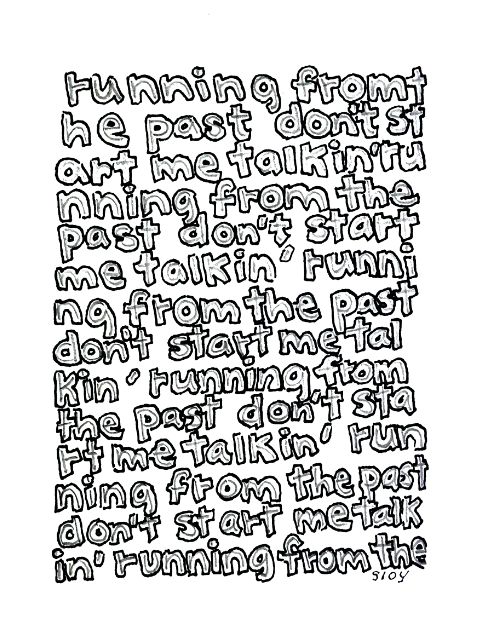 running fromt
he past don't st
art me talkin' ru
nning from the
past don't start
me talkin' runni
ng from the past
don't start me tal
kin' running from
the past don't sta
rt me talkin' run
ning from the past
don't start me talk
in' running from the